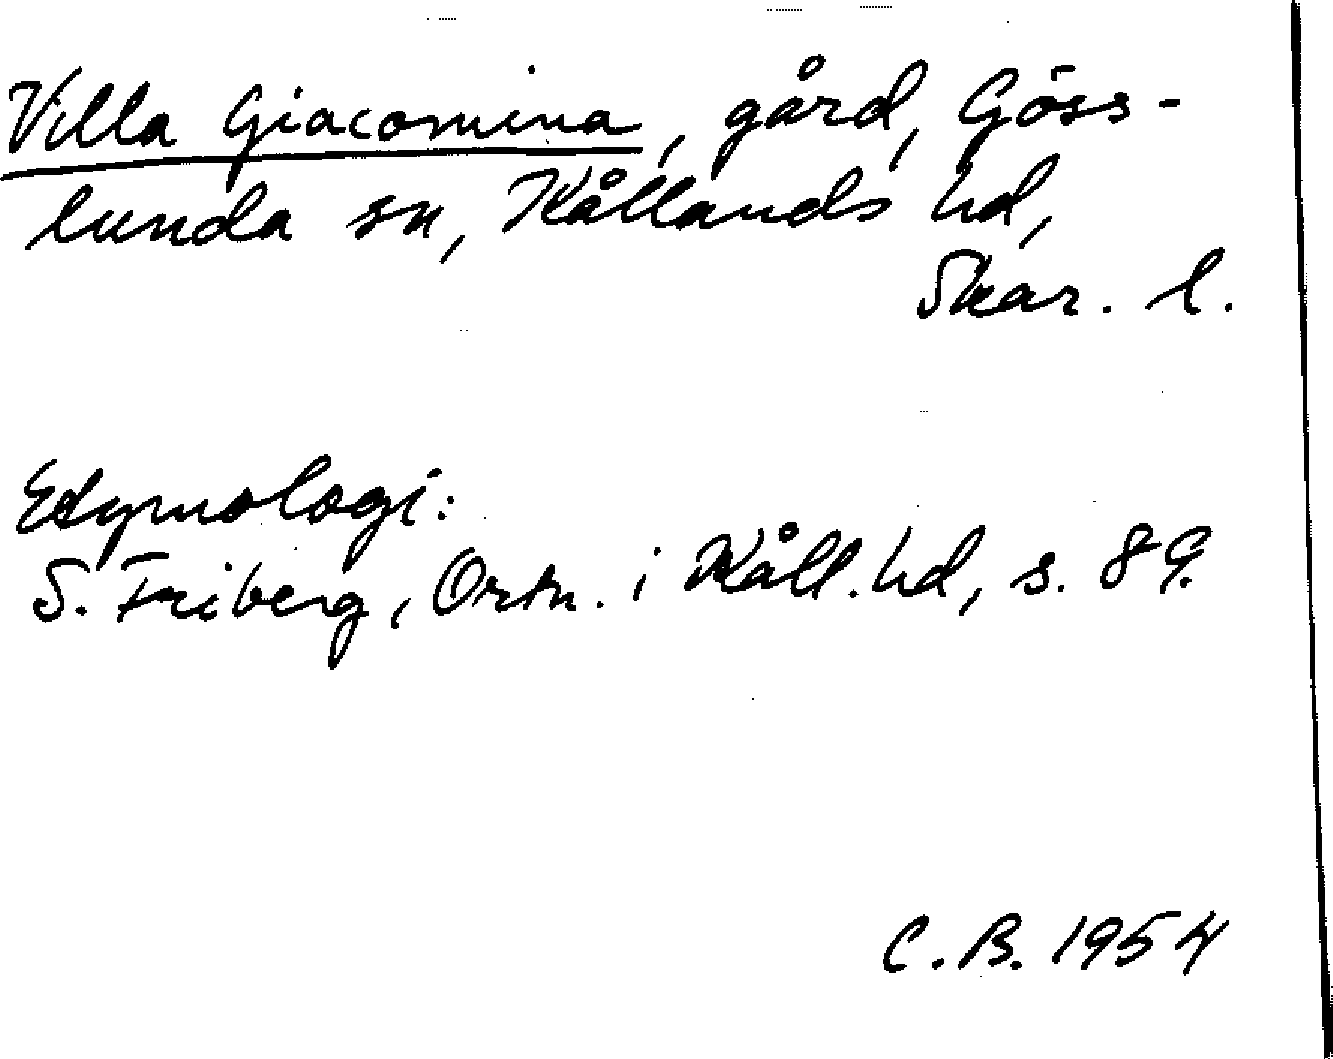 Villa Giacomina, gård, Göss-
lunda sn, Kållands hd,
Skar. l.
Etymologi:
S. Friberg, Ortn. i Kåll. hd, s. 89.
C. B. 1954